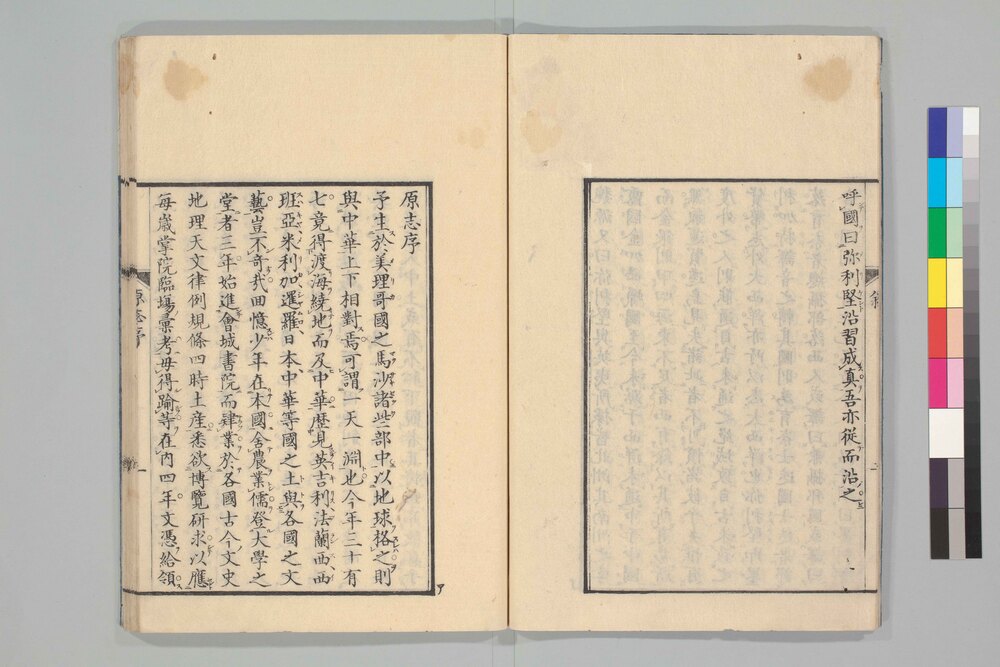 呼國曰弥利堅沿習成真吾亦從而沿之
原志序
予生於美理哥國之馬沙諸些部中以地球格之則
與中華上下相對焉可謂一天一淵也今年三十有
七竟得渡海繞地而及中華歷見英吉利法蘭西西
班亞米利加暹羅日本中華等國之土與各國之文
藝豈不奇哉回憶少年在本國舍農業儒登大學之
堂者三年始進會城書院而肄業於各國古今文史
地理天文律例規條四時土産悉欲博覽研求以應
每歲掌院臨場彙考毋得踰等在内四年文憑給領
原志序
一